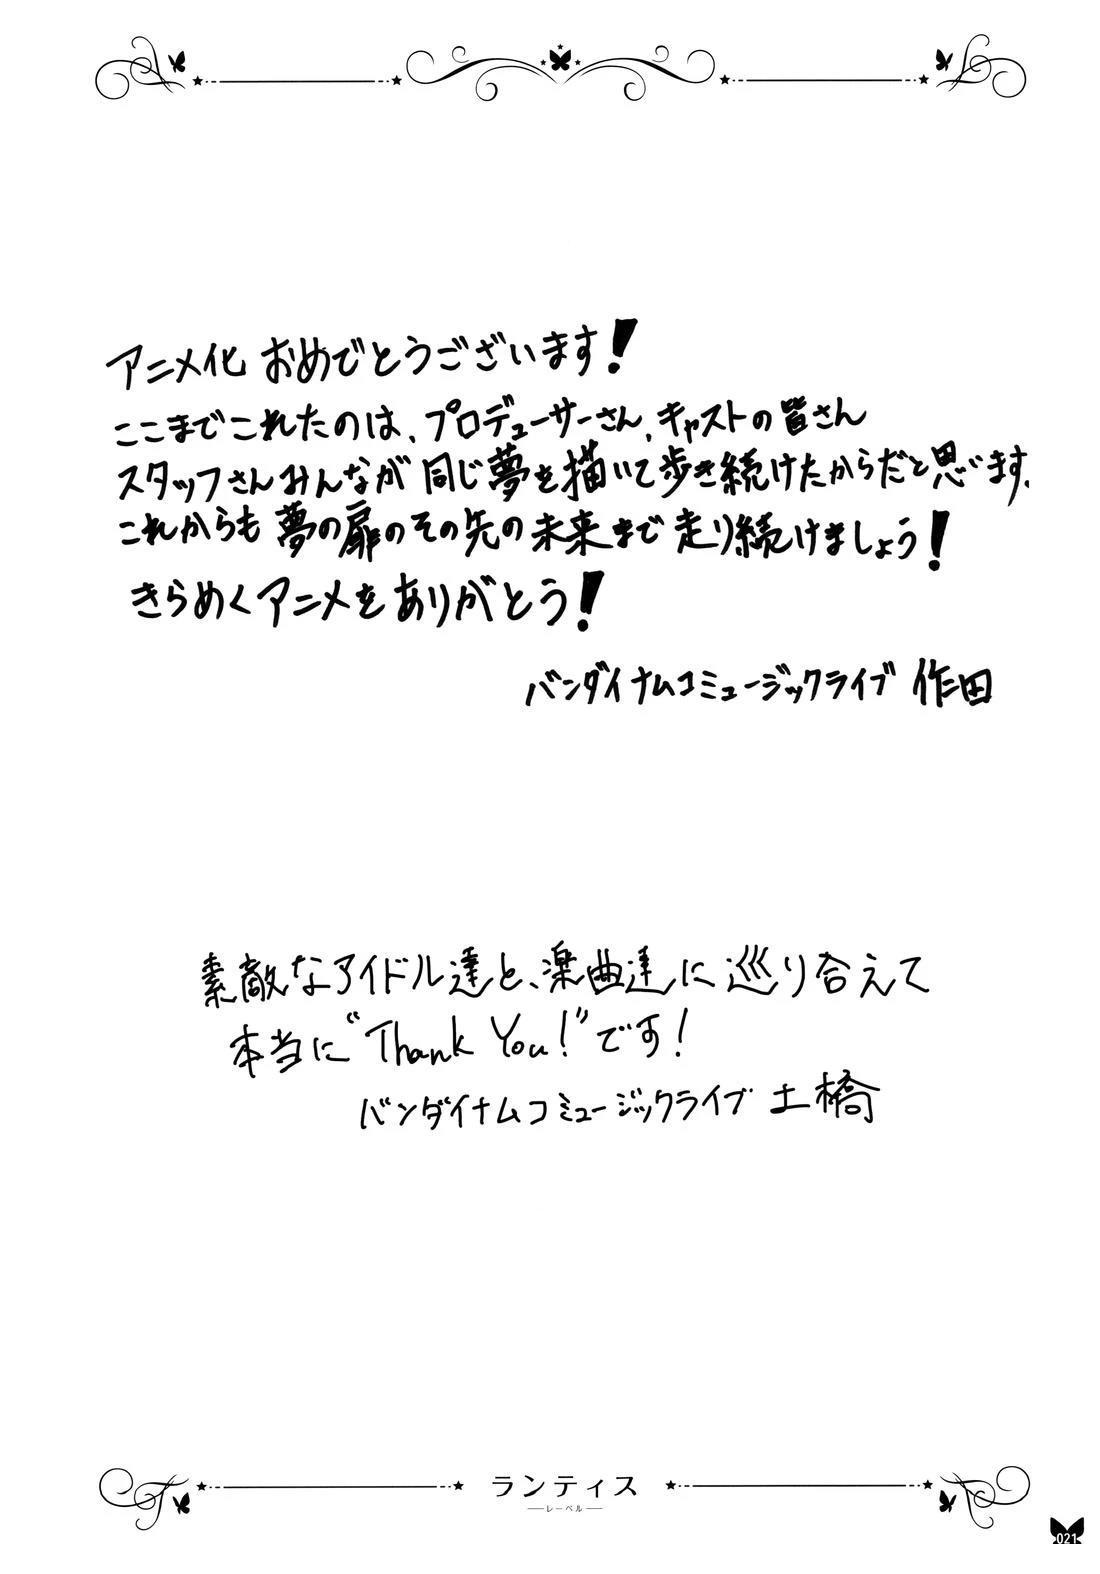 アニメ化 おめでとうございます!
ここまでこれたのは、プロデューサーさん、キャストの皆さん
スタッフさんみんなが 同じ夢を描いて歩き続けたからだと思います。
これからも 夢の扉のその先の未来まで 走り続けましょう!
きらめくアニメをありがとう!
バンダイナムコミュージックライブ 作田
素敵なアイドル達と、楽曲達に巡り合えて
本当に“Thank You!”です!
バンダイナムコミュージックライブ 土橋
ランティス
レーベル
021